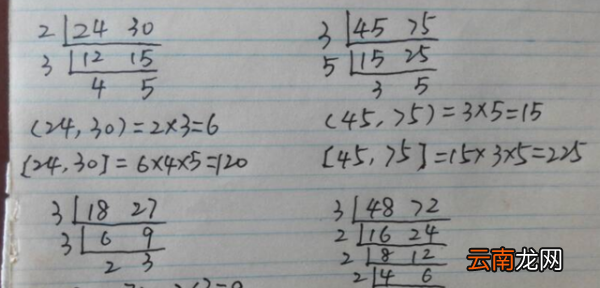 2 24 30
3 12 15
4 5
(24, 30) = 2×3=6
[24, 30] = 6×4×5=120
3 45 75
5 15 25
3 5
(45, 75) = 3×5=15
[45, 75] = 15×3×5=225
3 18 27
3 6 9
2 3
3 48 72
2 16 24
2 8 12
2 4 6
云南龙网